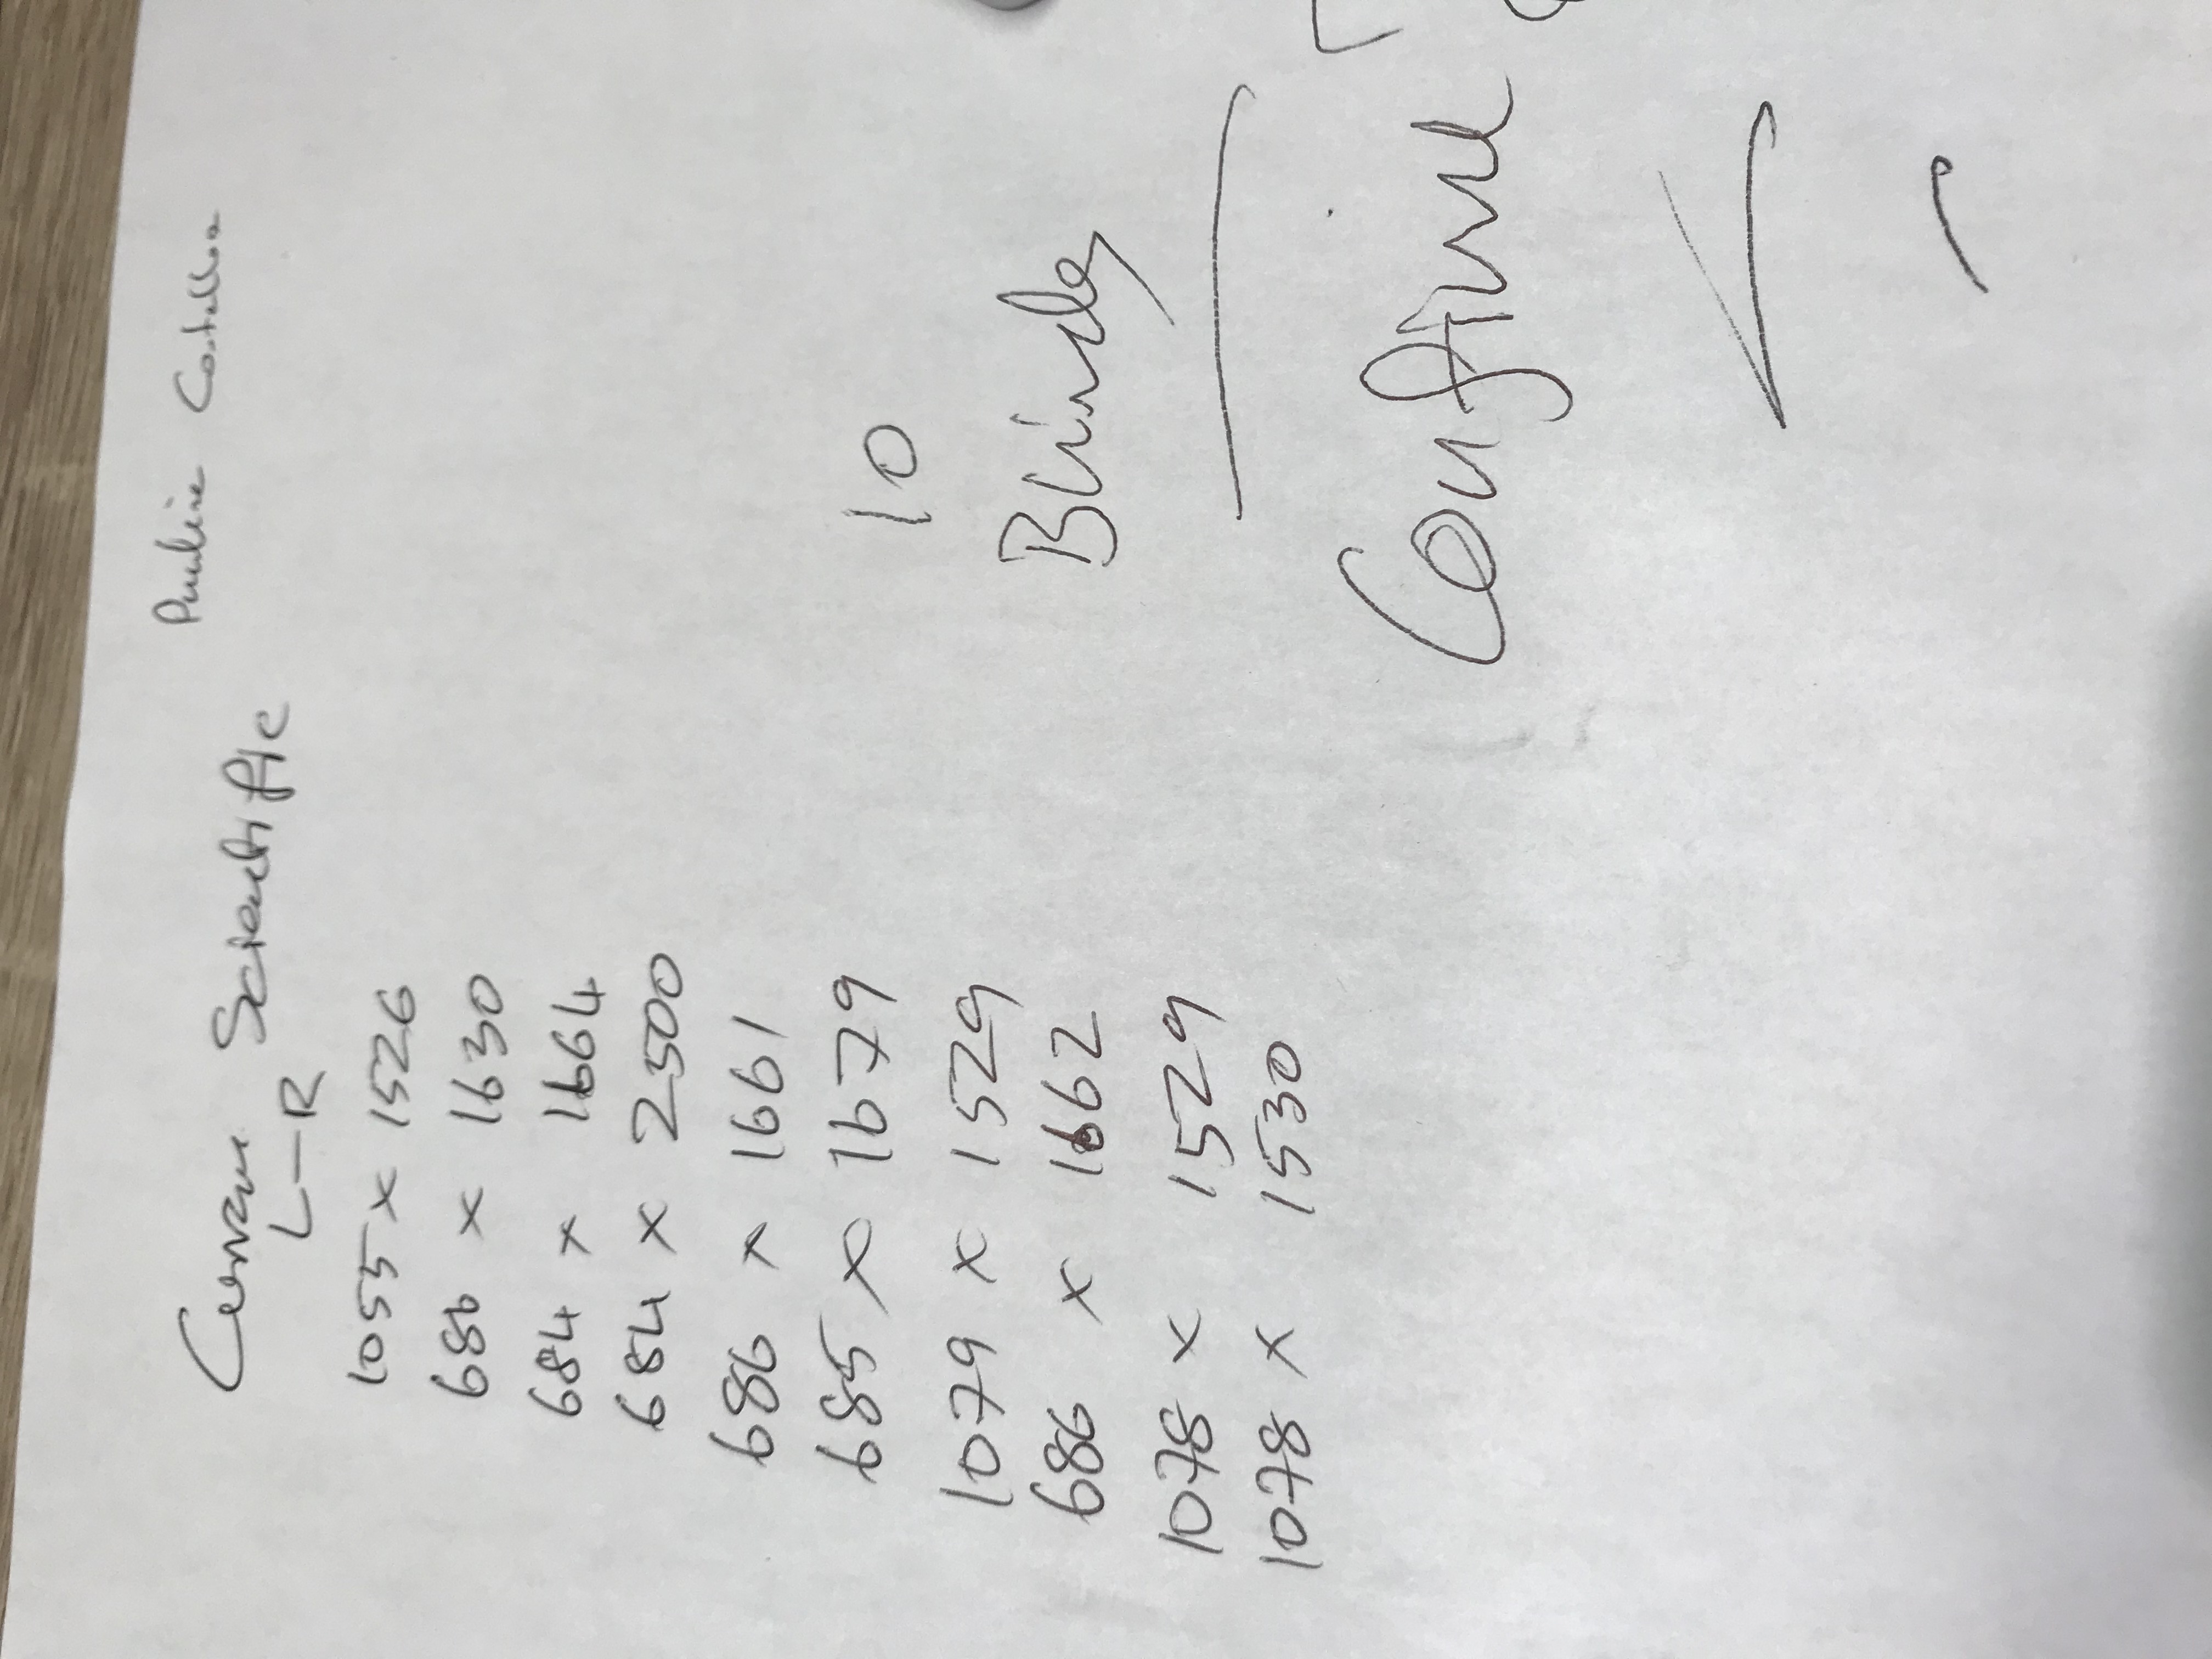 Pauline Costelloe
Curran Scientific
L-R
1055 x 1526
686 x 1630
684 x 1664
684 x 2500
686 x 1661
685 x 1679
1079 x 1529
686 x 1662
1078 x 1529
1078 x 1530
10
Blinds
Confirm